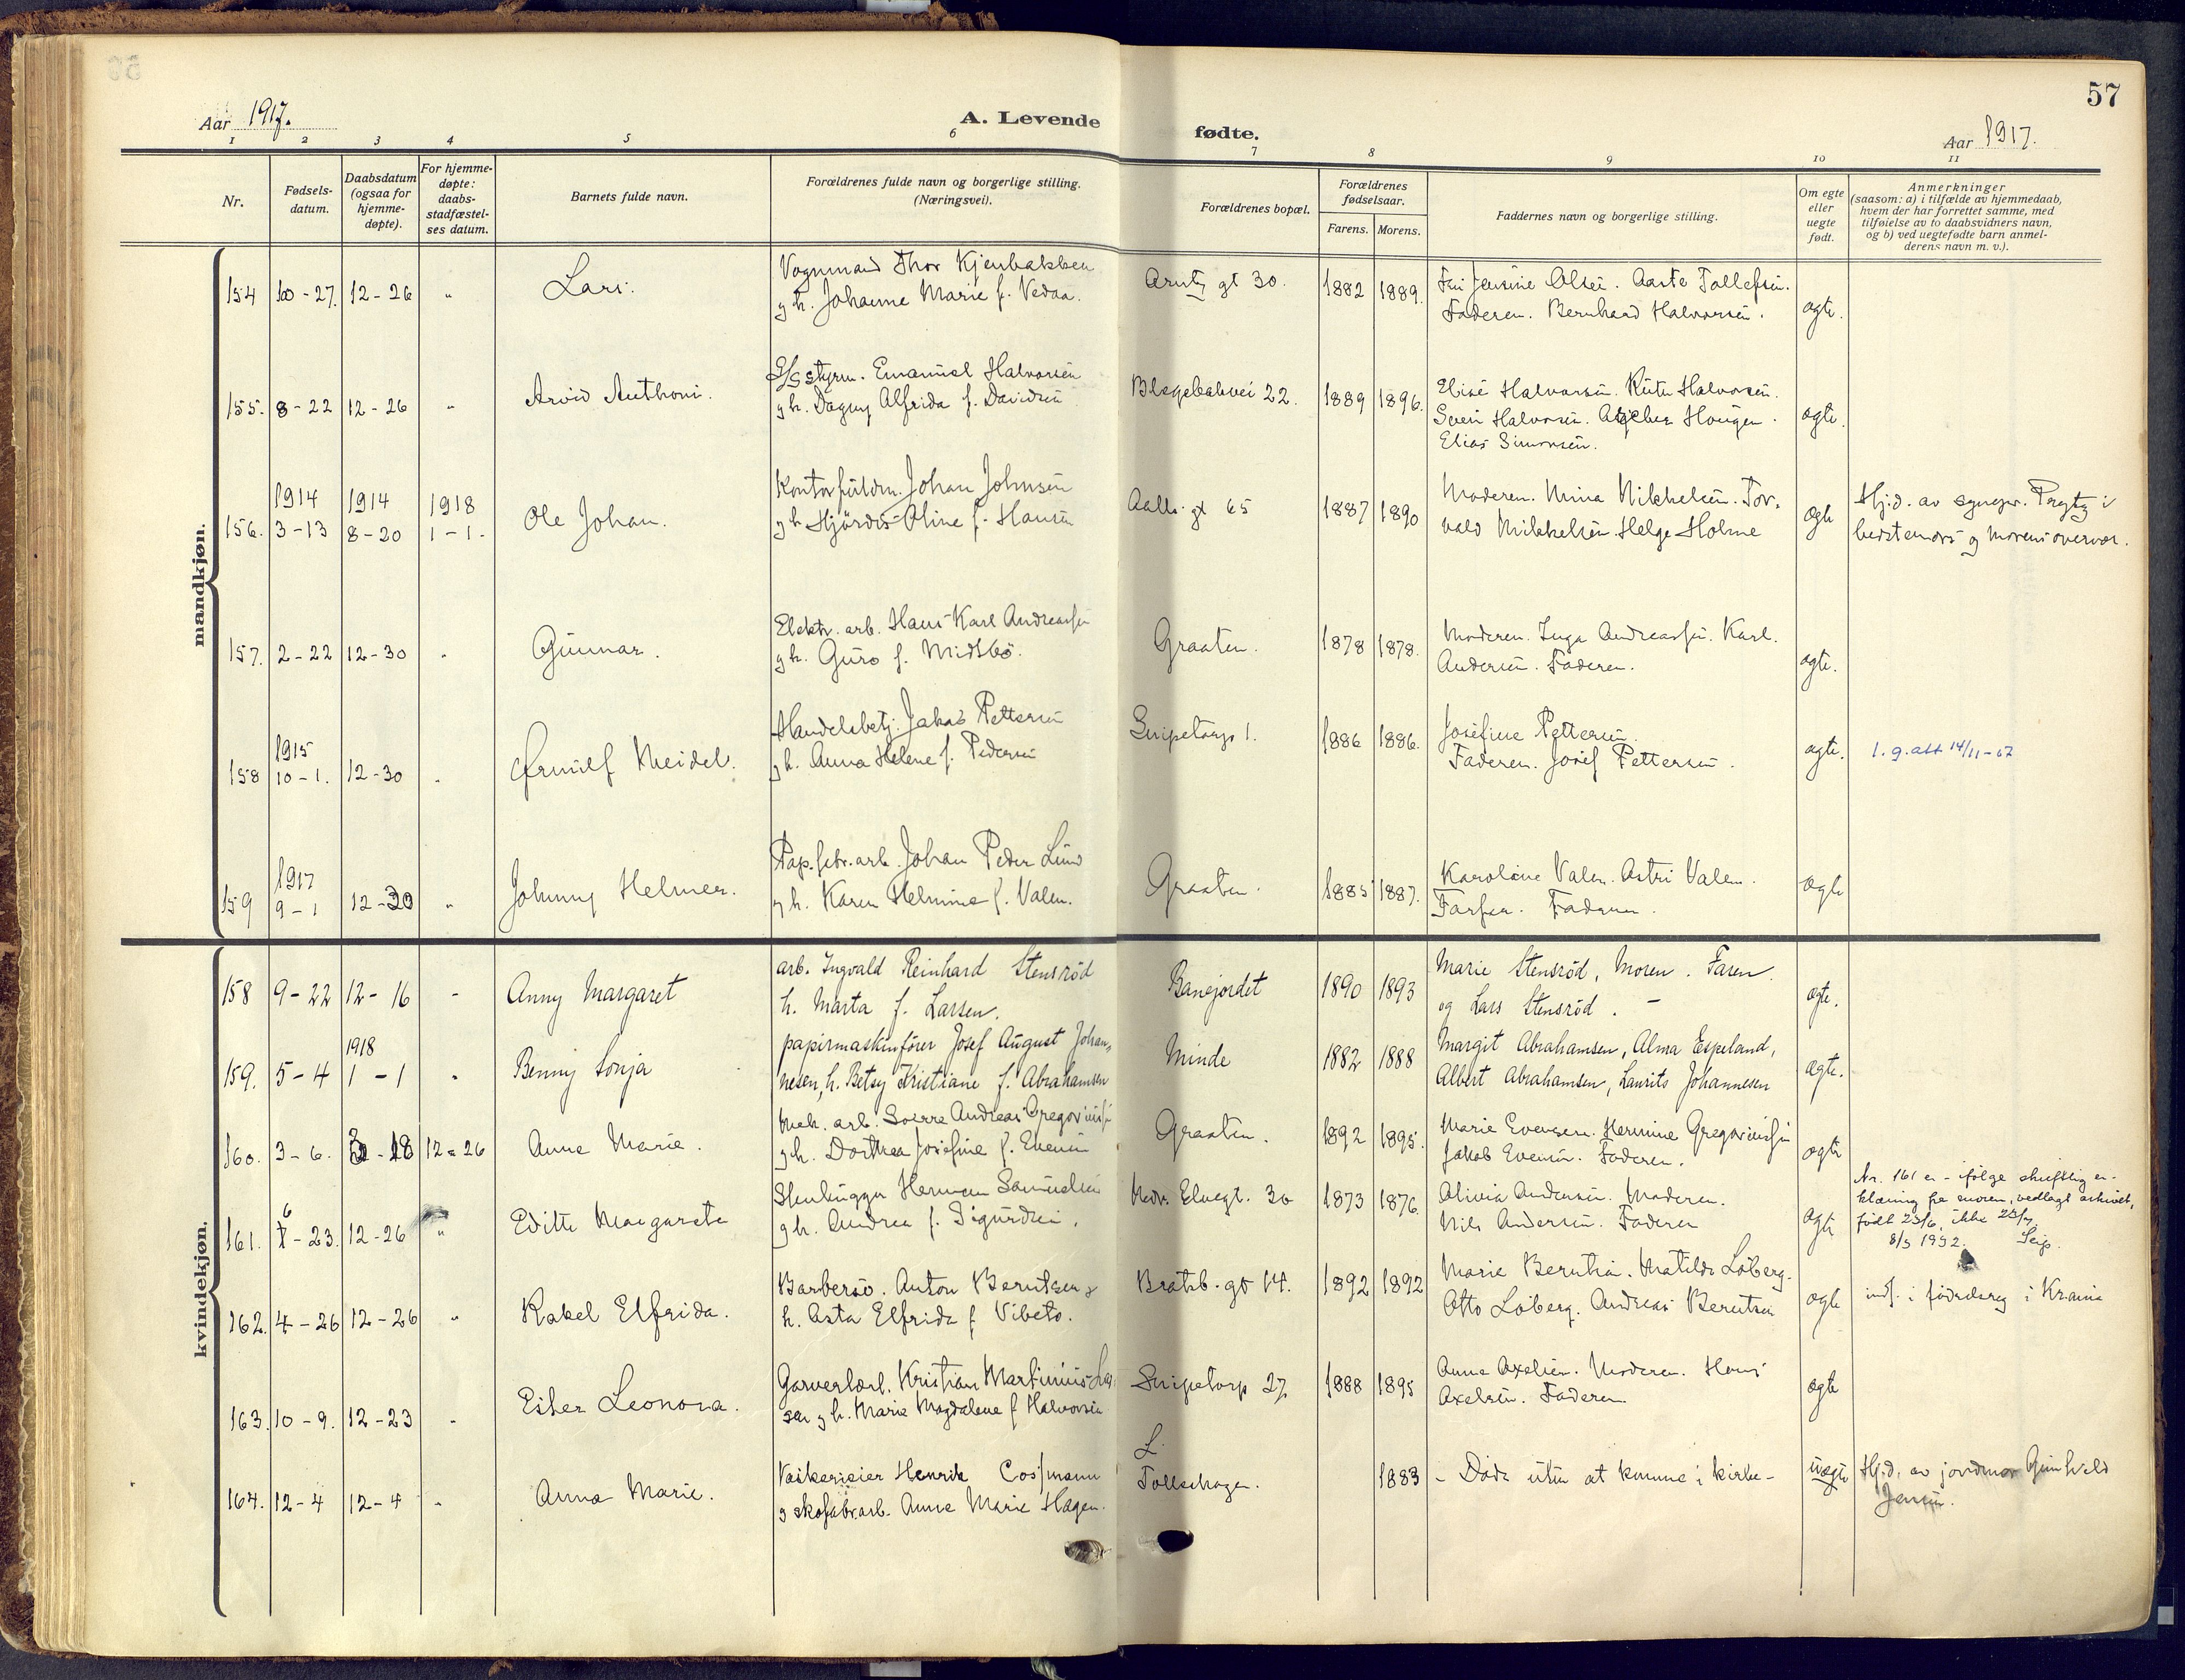 57
Aar 1917.
A. Levende fødte.
Aar 1917.
1 2 3 4 5 6 7 8 9 10 11
Nr.
Fødsels-
datum.
Daabsdatum
(ogsaa for
hjemme-
døpte).
For hjemme-
døpte:
daabs-
stadfæstel-
ses datum.
Barnets fulde navn.
Forældrenes fulde navn og borgerlige stilling.
(Næringsvei).
Forældrenes bopæl.
Forældrenes
fødselsaar.
Farens. Morens.
Faddernes navn og borgerlige stilling.
Om egte
eller
uegte
født.
Anmerkninger
(saasom: a) i tilfælde av hjemmedaab,
hvem der har forrettet samme, med
tilføielse av to daabsvidners navn,
og b) ved uegtefødte barn anmel-
derens navn m. v.).
mandkjøn.
154 10-27. 12-26 " Lars.
Vognmand Thor Kjenbakken
g h. Johanne Marie f. Vedaa.
gt 30. 1882 1889.
Jensine Olsen. Aaste Tollefsen.
Faderen. Bernhard Halvorsen.
ægte.
155. 8-22 12-26 " Arvid Anthoni.
S/S styrm. Emanuel Halvorsen
g h. Dagny Alfrida f. Davidsen
22. 1889 1896.
Elise Halvorsen. Rut Halvorsen.
Halvorsen. Haugen.
Elias Simonsen.
ægte.
1914 1914 1918
156. 3-13 8-20 1-1. Ole Johan.
Kontorfuldm. Johan Johnsen
g h Hjördis Oline f. Hansen
gt 65 1887 1890
Moderen. Mina Mikkelsen. Tor-
vald Mikkelsen. Helge Holme
ægte
Hj.d. av sognepr. i
bedstemors og morens overvær.
157. 2-22 12-30 " Gunnar.
Elektr. arb. Hans Karl Andreassen
g h. Guro f. Midtbö.
Graaten. 1878 1878.
Moderen. Inga Andreassen. Karl
Andersen. Faderen.
ægte.
1915
158 10-1. 12-30 " Ørnulf Meidel.
Handelsbetj. Jakob Pettersen
g h. Anna Helene f. Pedersen
Snipetorp 1. 1886 1886.
Josefine Pettersen.
Faderen. Josef Pettersen.
ægte. 1. g. att 14/11-67
1917
159 9-1 12-30 " Johnny Helmer.
Pap.fabr.arb. Johan Peder Lund
g h. Karen Helmine f. Valen.
Graaten. 1885 1887.
Karoline Valen. Astri Valen.
Farfar. Faderen.
ægte
kvindekjøn.
158 9-22 12-16 " Anny Margaret
arb. Ingvald Reinhard Stensröd
h. Marta f. Larsen.
Banejordet 1890 1893
Marie Stensröd, Moren. Faren.
og Lars Stensröd. -
ægte.
1918
159. 5-4 1-1 " Benny Sonja
papirmaskinfører Josef August Johan-
nesen, h. Betsy Kristiane f. Abrahamsen
Minde 1882 1888
Margit Abrahamsen, Alma Espeland,
Albert Abrahamsen, Laurits Johannesen
ægte.
160. 3-6. 3-18 12-26 Anne Marie.
Mek. arb. Sverre Andreas Gregoriussen
g h. Dorthea Josefine f. Evensen
Graaten. 1892 1895.
Marie Evensen. Hermine Gregoriussen
Jakob Evensen. Faderen.
ægte
6
161. 7-23. 12-26 " Edith Margarete
Stenhugger Herman Samuelsen
g h. Andrea f. Sigurdsen.
Nedr. Elvegt. 30 1873 1876.
Olivia Andersen. Moderen.
Nils Andersen. Faderen
ægte
Nr. 161 er - ifølge skriftlig er-
klæring fra moren, vedlagt arkivet,
født 23/6, ikke 23/7.
8/3 1932. Seip.
162. 4-26 12-26 " Rakel Elfrida.
Barbersv. Anton Berntsen g
h. Asta Elfrida f Vibeto.
Bratsb. gt 14. 1892 1892
Marie Berntsen. Matilde Löberg.
Otto Löberg. Andreas Berntsen
ægte
indf. i fødselsreg i Kr.ania
163. 10-9. 12-23 " Ester Leonora.
Garveriarb. Kristian Martinius Lar-
sen g h. Marie Magdalene f Halvorsen
Snipetorp 27. 1888 1895
Anna Axelsen. Moderen. Hans
Axelsen. Faderen.
ægte
164. 12-4 12-4 " Anna Marie.
Vaskerieier Henrik Cosmann
g skofabr.arb. Anne Marie Hagen.
L.
Follaugen. 1883
- Döde uten at komme i kirke -
uægte
Hj.d. av jordmor Gunhild
Jensen.